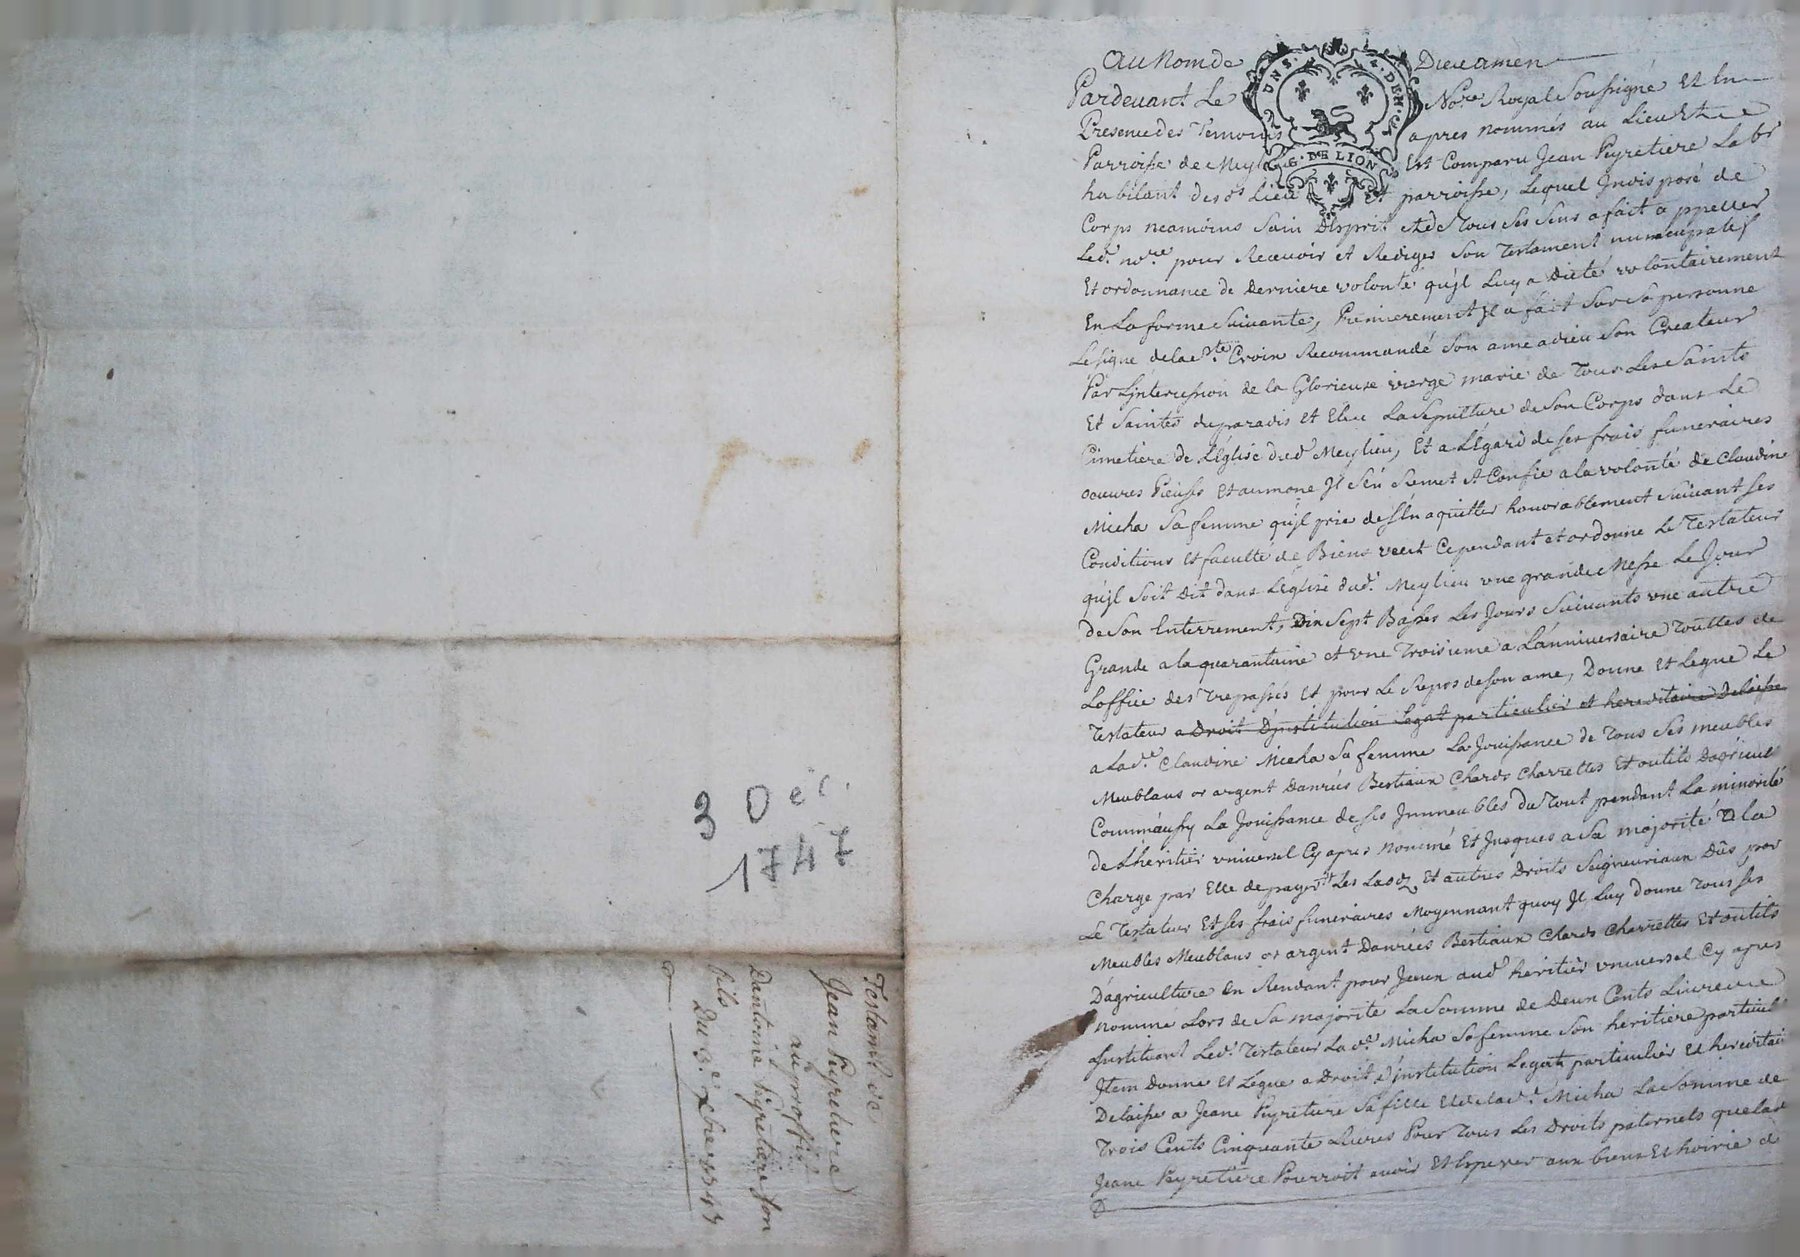 3 Déc.
1747
Testament de
Jean Peyretiere
au proffit
Dantoine Peyretiere son
fils
Du 3e Xbre 1747
Au Nom de Dieu amen
DNS. 4. DEN.
G. DE LION
Pardevant Le Nore Royal Soussigné Et En
Presence des Temoins apres nommés au Lieu Et
Parroisse de Meylieu Est Comparu Jean Peyretiere Labr
habitant desds Lieu Et parroisse, Lequel Jndisposé de
Corps neamoins Sain Desprit Et de Tous Ses Sens a fait appeller
Led. nore pour Recevoir et Rediger Son Testament nuncupatif
Et ordonnance de Derniere volonté qu'jl Luy a Dicté volontairement
En La forme Suivante, Premierement Jl a fait Sur Sa personne
Le signe de la Ste Croix Recommandé Son ame a dieu Son Createur
Par Lintercession de la Glorieuse vierge marie de Tous Les Saints
Et Saintes du paradis Et Elu La Sepulture de Son Corps dans Le
Cimetiere de L'église dud Meylieu, Et a L'égard de ses frais funeraires
oeuvres Pieuses Et aumone Jl S'en Remet Et Confie a la volonté de Claudine
Micha Sa femme qu'jl prie de s'En aquitter honorablement Suivant Ses
Conditions Et faculté de Biens veut Cependant et ordonne Le Testateur
qu'jl Soit Dit dans L'église dud. Meylieu une grande Messe Le Jour
de Son Enterrement, Dix Sept Basses Les Jours Suivants une autre
Grande a la quarantaine et une Troisieme a Lanniversaire Toutes de
Loffice des Trepassés Et pour Le Repos de son ame, Donne Et Legue Le
Testateur a Droit Djnstitution Legat particulier et hereditaire Delaisse
a Lade Claudine Micha Sa femme La Jouissance de Tous Ses meubles
Meublans or argent Danrées Bestiaux Chards Charrettes Et outils Dagricult
Comm'aussy La Jouissance de ses Jmmeubles du Tout pendant La minorité
de L'héritier universel Cy apres Nommé Et Jusques a Sa majorité a la
Charge par Elle de payer Les Et autres Droits Seigneuriaux Dûs par
Le Testateur Et Ses frais funeraires Moyennant quoy Jl Luy donne Tous Ses
Meubles Meublans or argent Danrées Bestiaux Chards Charrettes Et outils
Dagriculture En Rendant pour Jceux aud héritier universel Cy apres
nommé Lors de Sa majorité La Somme de Deux Cents Livres
Jnstituant Led. Testateur Lad. Micha Sa femme Son heritiere particul
Jtem Donne Et Legue a Droit d'jnstitution Legat particulier Et hereditai
Delaisse a Jeane Peyretiere Sa fille Et de lad. Micha La Somme de
Trois Cents Cinquante Livres Pour Tous Les Droits paternels que lad
Jeane Peyretiere Pourroit avoir Et Esperer aux biens Et hoirie de